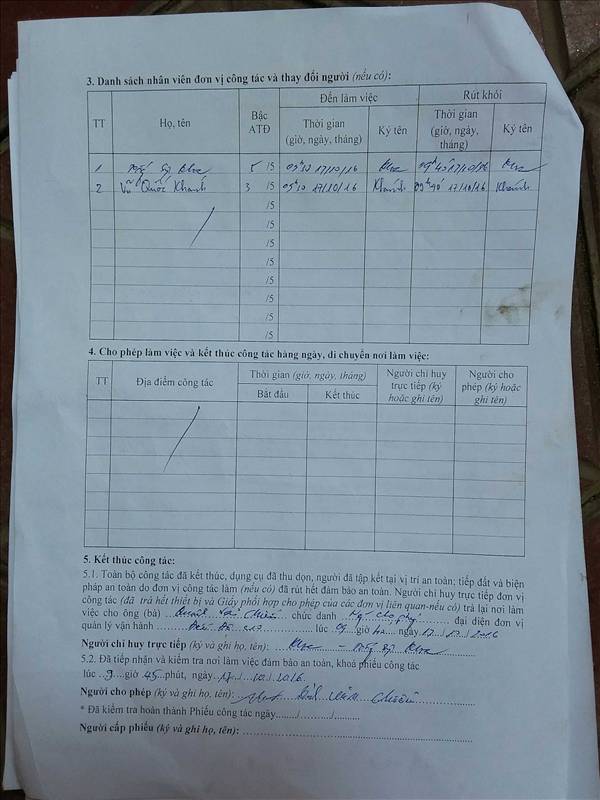 3. Danh sách nhân viên đơn vị công tác và thay đổi người (nếu có):
TT Họ, tên Bậc ATĐ Đến làm việc Rút khỏi
Thời gian (giờ, ngày, tháng) Ký tên Thời gian (giờ, ngày, tháng) Ký tên
1 5 /5 17/10/16 Khoa 17/10/16 Khoa
2 Vũ Quốc Khánh 3 /5 17/10/16 Khánh 17/10/16 Khánh
/5
/5
/5
/5
/5
/5
/5
4. Cho phép làm việc và kết thúc công tác hàng ngày, di chuyển nơi làm việc:
TT Địa điểm công tác Thời gian (giờ, ngày, tháng) Người chỉ huy trực tiếp (ký hoặc ghi tên) Người cho phép (ký hoặc ghi tên)
Bắt đầu Kết thúc
5. Kết thúc công tác:
5.1. Toàn bộ công tác đã kết thúc, dụng cụ đã thu dọn, người đã tập kết tại vị trí an toàn; tiếp đất và biện
pháp an toàn do đơn vị công tác làm (nếu có) đã rút hết đảm bảo an toàn. Người chỉ huy trực tiếp đơn vị
công tác (đã trả hết thiết bị và Giấy phối hợp cho phép của các đơn vị liên quan-nếu có) trả lại nơi làm
việc cho ông (bà) chức danh đại diện đơn vị
quản lý vận hành lúc giờ ngày 17 / 10 / 2016
Người chỉ huy trực tiếp (ký và ghi họ, tên): Khoa
5.2. Đã tiếp nhận và kiểm tra nơi làm việc đảm bảo an toàn, khoá phiếu công tác
lúc 9 giờ 45 phút, ngày 17 / 10 / 2016.
Người cho phép (ký và ghi họ, tên):
* Đã kiểm tra hoàn thành Phiếu công tác ngày......./........../.........
Người cấp phiếu (ký và ghi họ, tên):